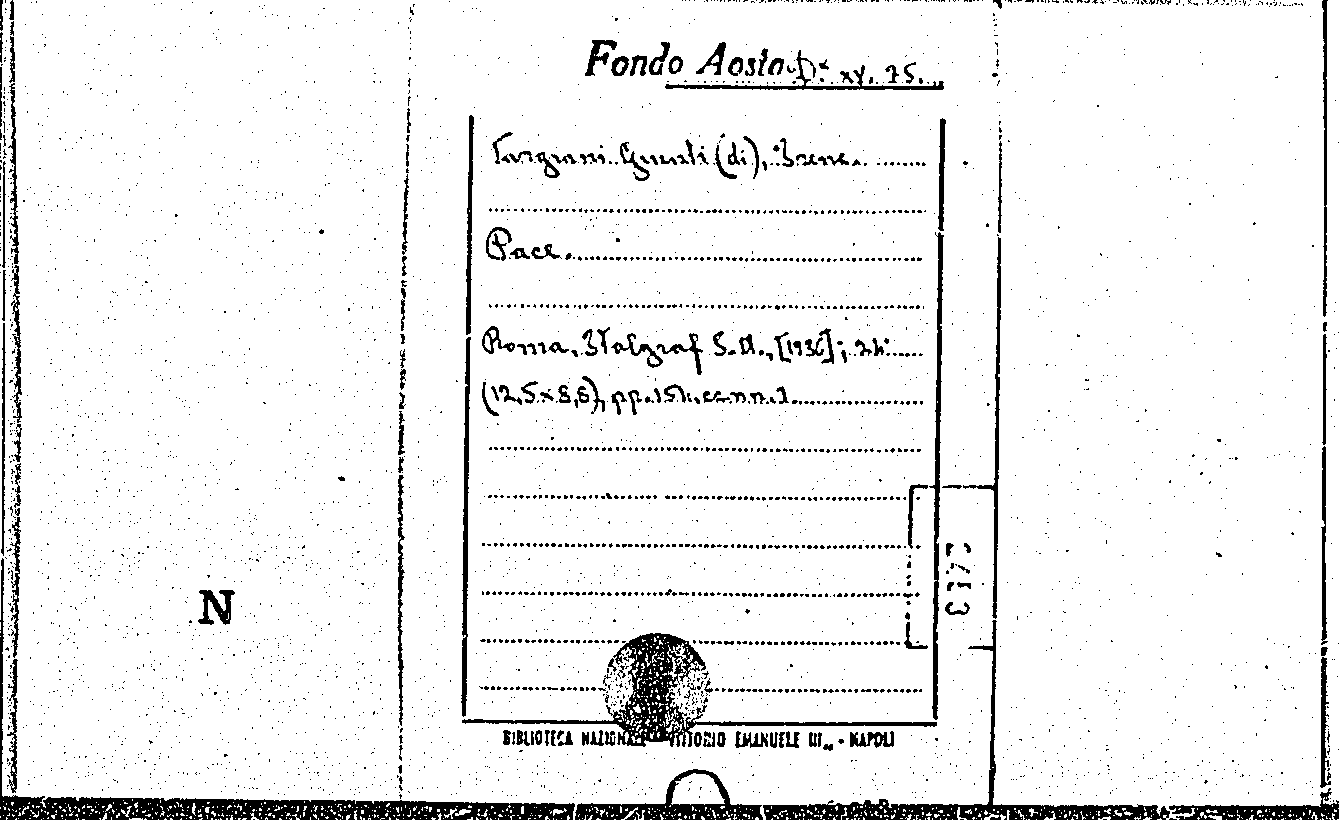 Fondo Aosta D. XV. 75.
Targiani Giunti (di), Irene.
Pace.
Roma, Italgraf S. A., [1936]; 24°
(12,5 x 8,8), pp. 154, cc. nn. 1.
N
BIBLIOTECA NAZIONALE VITTORIO EMANUELE III„ - NAPOLI